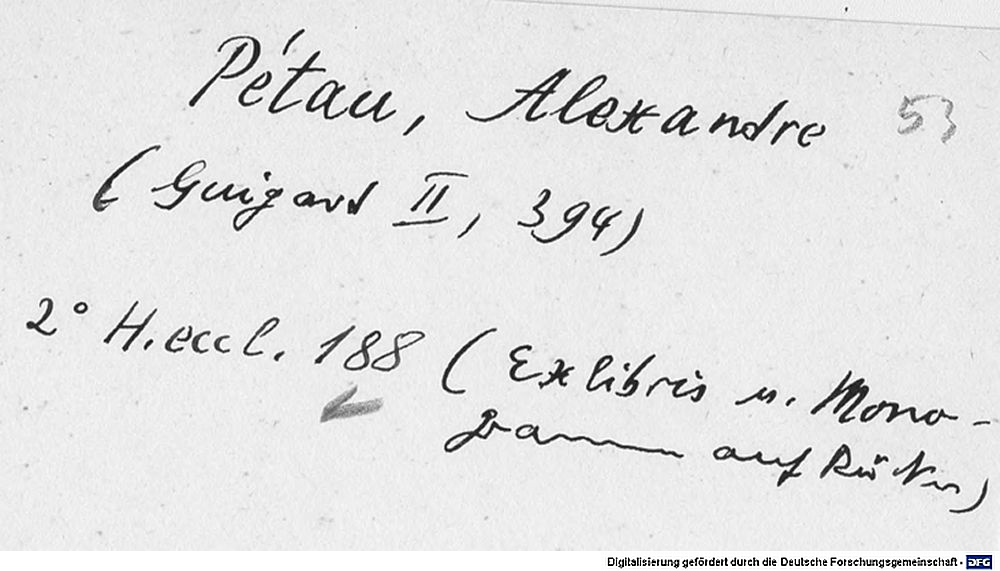 Pétau, Alexandre 53
(Guigard II, 394)
2° H.eccl. 188 (Exlibris u. Mono-
gramm auf Rücken)
Digitalisierung gefördert durch die Deutsche Forschungsgemeinschaft - DFG